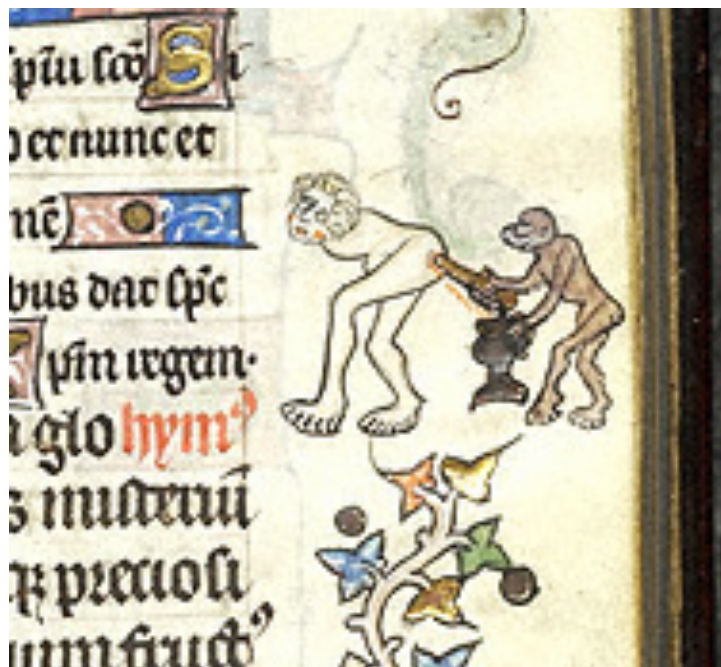 sp̄iu sc̄o Si
o et nunc et
mē
bus dat sp̄c
p̄m regem·
a glo hymꝰ
s misteriū
qꝫ preciosi
ium fructꝰ